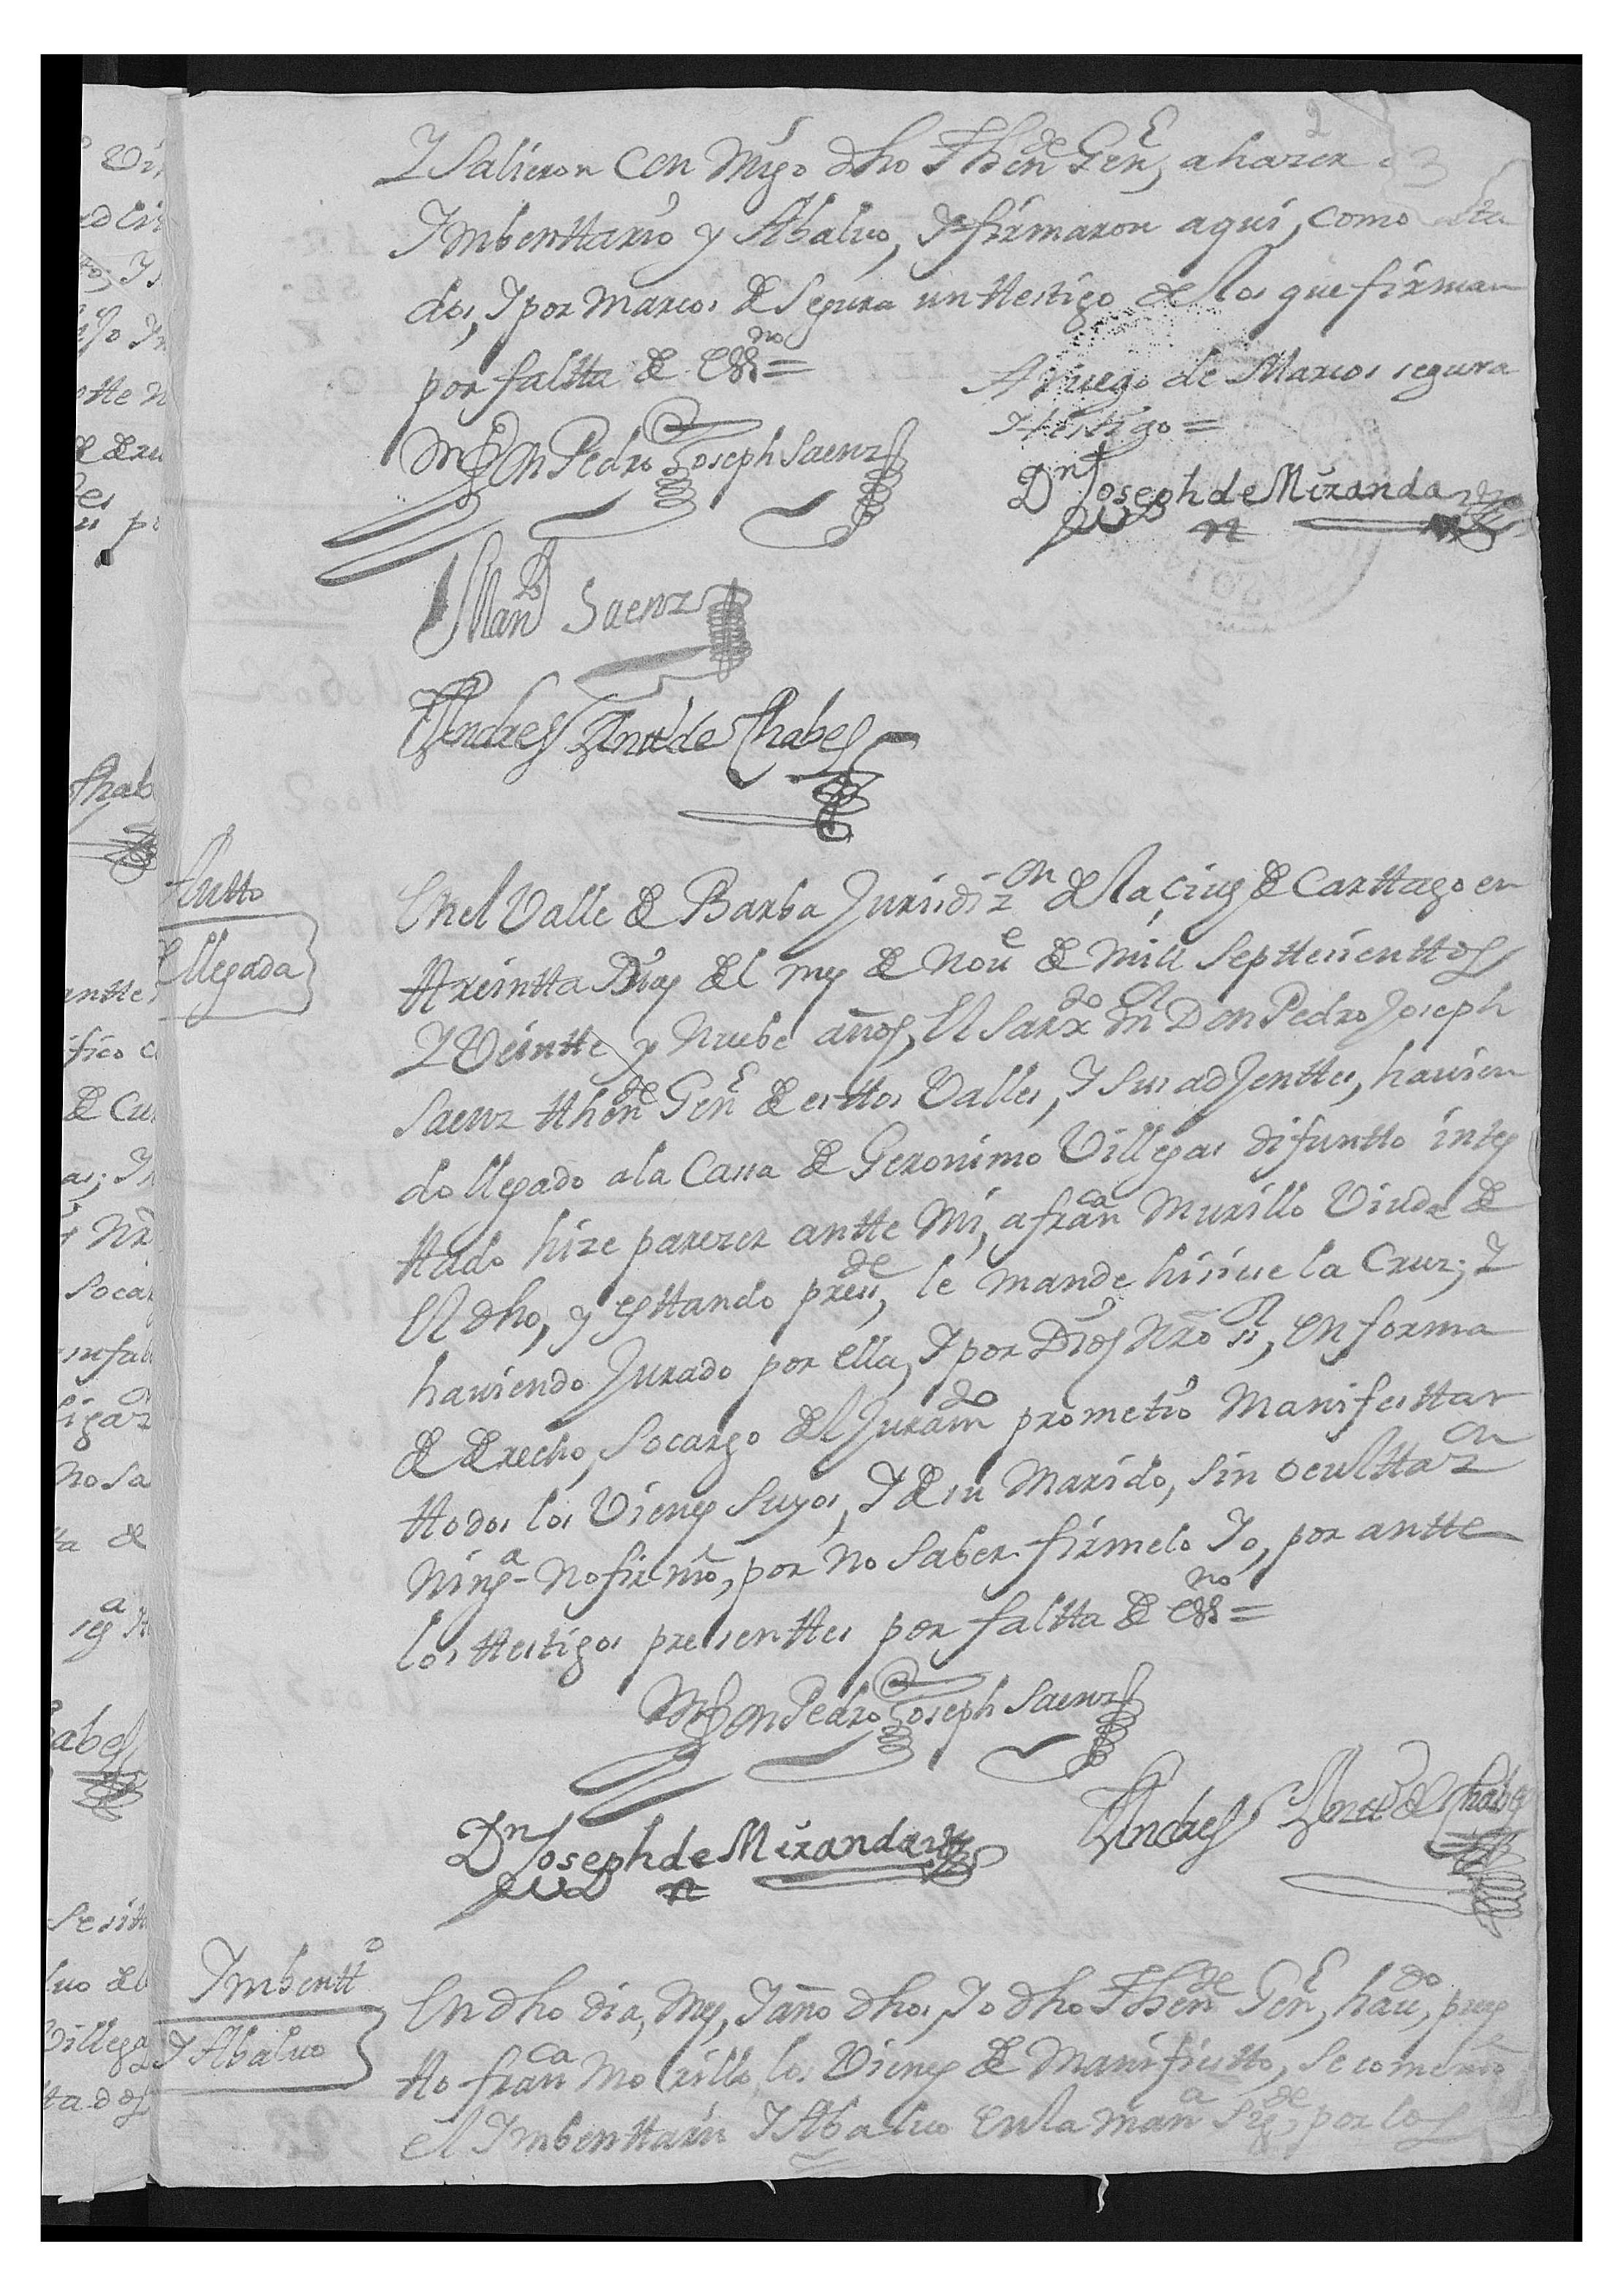 2
Y Salieron Con Migo dho Thente Genl, a hazer
3
Ymbenttario y Abaluo, Y firmaron aqui, como
dos, Y por Marcos de Segura un ttestigo de los que firman
por faltta de Essno =
A Ruego de Marcos segura
Y ttestigo =
Don Pedro Joseph Saenz
Dn Joseph de Miranda
Manl Saenz
Andres Antt de Chabes
Autto
de llegada
En el Valle de Barba Jurisdizon de la ciud de Carttago en
ttreintta Dias del mes de Noue de mill septtesienttos
Y Veintte y Nuebe años, El Sarxto mr Don Pedro Joseph
Saenz tthente Genl de esttos Valles, Y sus adJenttes, hauien
do llegado a la Cassa de Geronimo Villegas difuntto intes
ttado hize parezer antte Mi, a franca Murillo Viuda de
El dho, y esttando presde, le mande hisiese la Cruz; Y
hauiendo Jurado por ella, Y por Dios Nro sr, en forma
de derecho, Socargo del Juramdo prometio Manifesttar
ttodos los Vienes suyos, Y de su Marido, sin oculttazon
Ninga no firmo, por no saber firmelo Yo, por antte
los ttestigos presenttes por faltta de Essno =
Don Pedro Joseph Saenz
Dn Joseph de Miranda
Andres Antt de Chabes
Ymbentto
Y Abaluo
En dho dia, Mes, Y año dhos, Yo dho Thente Genl, haudo, pues
tto franca Morillo los Vienes de Manifiestto, se comenso
el Ymbenttario Y Abaluo en la mana sigde, por los